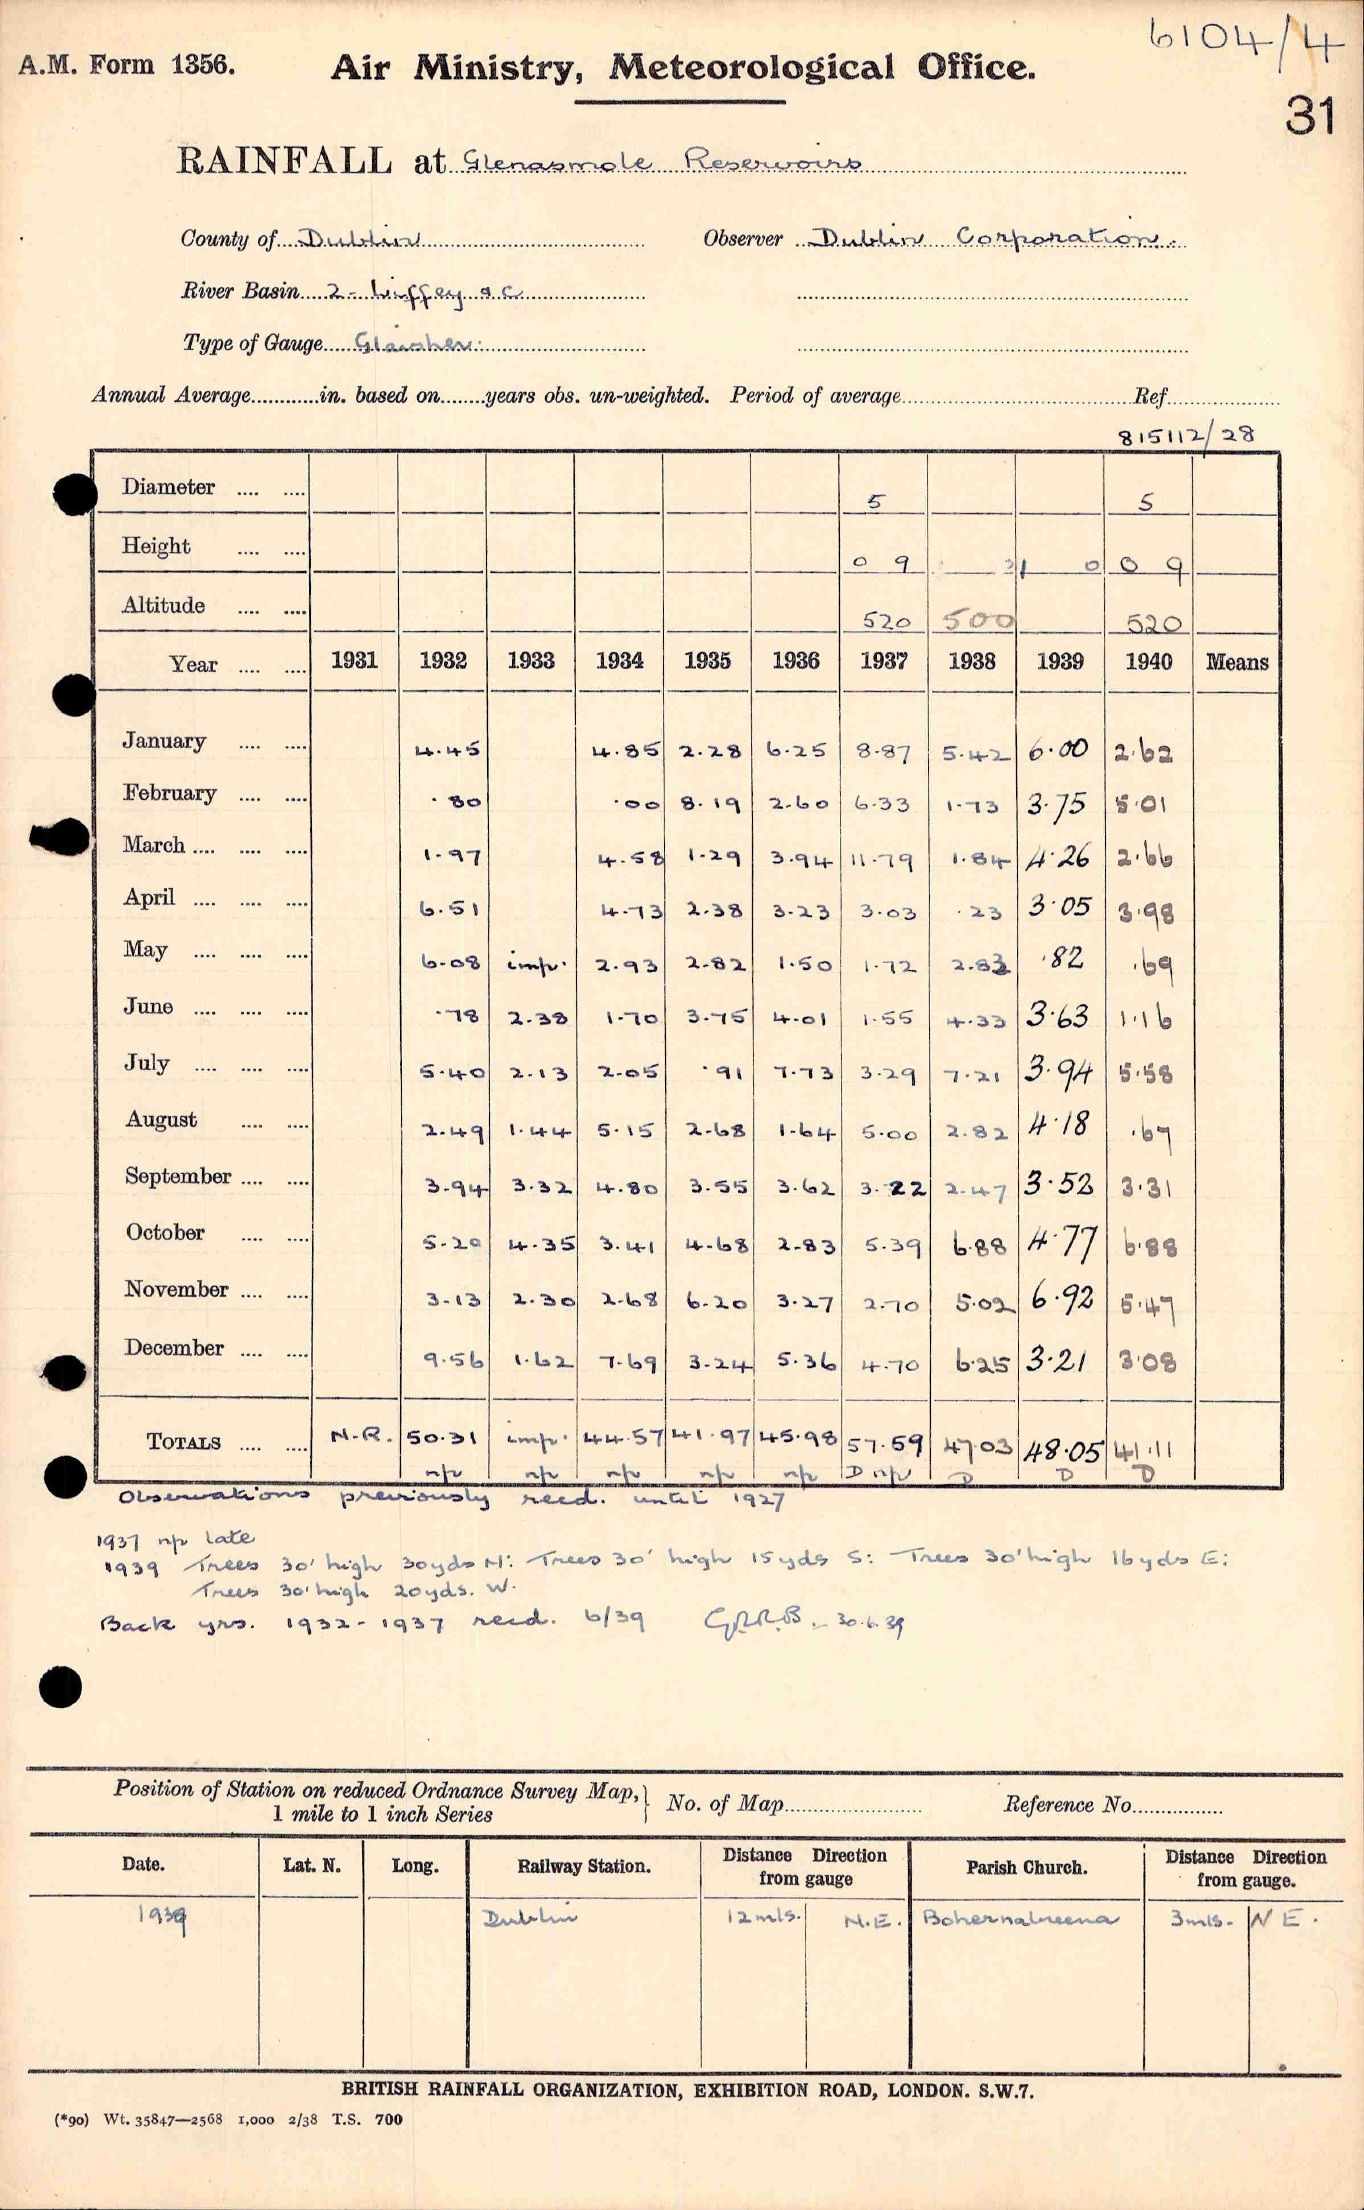 6104/4
A.M. Form 1356. Air Ministry, Meteorological Office.
31
RAINFALL at Glenasmole Reservoirs
County of Dublin Observer Dublin Corporation.
River Basin 2 - Liffey &c
Type of Gauge Glaisher.
Annual Average............in. based on........years obs. un-weighted. Period of average.................... Ref...................
815112/28
Diameter .... .... 5 5
Height .... .... 0 9 1 0 0 9
Altitude .... .... 520 500 520
Year .... .... 1931 1932 1933 1934 1935 1936 1937 1938 1939 1940 Means
January .... .... 4.45 4.85 2.28 6.25 8.87 5.42 6.00 2.62
February .... .... .80 .00 8.19 2.60 6.33 1.73 3.75 5.01
March .... .... .... 1.97 4.58 1.29 3.94 11.79 1.84 4.26 2.66
April .... .... .... 6.51 4.73 2.38 3.23 3.03 .23 3.05 3.98
May .... .... .... 6.08 imp. 2.93 2.82 1.50 1.72 2.83 .82 .69
June .... .... .... .78 2.38 1.70 3.75 4.01 1.55 4.33 3.63 1.16
July .... .... .... 5.40 2.13 2.05 .91 7.73 3.29 7.21 3.94 5.58
August .... .... 2.49 1.44 5.15 2.68 1.64 5.00 2.82 4.18 .67
September .... .... 3.94 3.32 4.80 3.55 3.62 3.22 2.47 3.52 3.31
October .... .... 5.20 4.35 3.41 4.68 2.83 5.39 6.88 4.77 6.88
November .... .... 3.13 2.30 2.68 6.20 3.27 2.70 5.02 6.92 5.47
December .... .... 9.56 1.62 7.69 3.24 5.36 4.70 6.25 3.21 3.08
TOTALS .... .... N.R. 50.31 imp. 44.57 41.97 45.98 57.59 47.03 48.05 41.11
np np np np np D np D D D
Observations previously recd. until 1927
1937 np late
1939 Trees 30' high 30yds N: Trees 30' high 15yds S: Trees 30' high 16yds E:
Trees 30' high 20yds. W.
Back yrs. 1932-1937 recd. 6/39 30.6.39
Position of Station on reduced Ordnance Survey Map,
1 mile to 1 inch Series
No. of Map........................ Reference No................
Date. Lat. N. Long. Railway Station. Distance from gauge Direction Parish Church. Distance Direction from gauge.
1939 Dublin 12mls. N.E. Bohernabreena 3mls. NE.
BRITISH RAINFALL ORGANIZATION, EXHIBITION ROAD, LONDON. S.W.7.
(*90) Wt. 35847—2568 1,000 2/38 T.S. 700